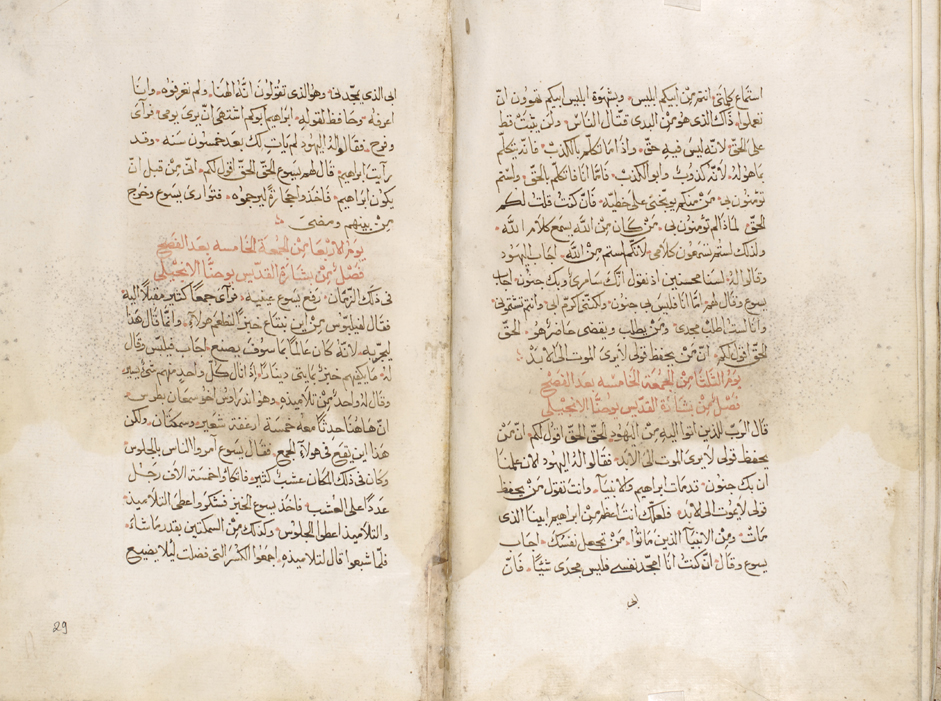 استماع كلامي انتم من ابيكم ابليس وبشهوة ابليس ابيكم تهوون ان
تعملوا ذاك الذي هو من البدي قتال الناس ولن يثبت قط
على الحق لانه ليس فيه حق واذا ما تكلم بالكذب فانه يتكلم
بما هو له لانه كذوب وابو الكذب فاما انا فاتكلم بالحق ولستم
تومنون بي من منكم يوبخني على خطيه فان كنت قلت لكم
الحق لماذا لم تومنون بي من كان من الله يسمع كلام الله
ولذلك لستم تسمعون كلامي لانكم لستم من الله اجاب اليهود
وقالوا له السنا محسنين اذ نقول انك سامري وبك جنون اجاب
يسوع وقال لهم اما انا فليس بي جنون ولكنني اكرم ابي وانتم تشتموني
وانا لست اطلب مجدي ومن يطلب ويقضي حاضر هو الحق
الحق اقول لكم ان من يحفظ قولي لا يرى الموت الى الابد
يوم الثلثا من الجمعة الخامسه بعد الفصح
فصل من بشارة القديس يوحنا الانجيلي
قال الرب للذين اتوا اليه من اليهود الحق الحق اقول لكم ان من
يحفظ قولي لا يرى الموت الى الابد فقالوا له اليهود الان علمنا
ان بك جنون قد مات ابراهيم والانبيآ وانت تقول من يحفظ
قولي لا يموت الى الابد فلعلك انت اعظم من ابراهيم ابينا الذي
مات ومن الانبيآ الذين ماتوا من تجعل نفسك اجاب
يسوع وقال ان كنت انا امجد نفسي فليس مجدي شيًا فان
ابي
ابي الذي يمجدني وهو الذي تقولون انه الهنا ولم تعرفوه وانا
اعرفه وحافظ لقوله ابراهيم ابوكم اشتهى ان يرى يومي فرآى
وفرح فقال له اليهود لم يات لك بعد خمسون سنه وقد
رآيت ابراهيم قال لهم يسوع الحق الحق اقول لكم انني من قبل ان
يكون ابراهيم فاخذوا حجارة ليرجموه فتوارى يسوع وخرج
من بينهم ومضى
يوم الاربعا من الجمعة الخامسه بعد الفصح
فصل من بشارة القديس يوحنا الانجيلي
في ذلك الزمان رفع يسوع عينيه فرآى جمعا كثير مقبلا اليه
فقال لفيلبوس من اين نبتاع خبزا لنطعم هولآء وانما قال هذا
ليجربه لانه كان عالما بما سوف يصنع اجاب فيلبس وقال
له ما يكفيهم خبز بمايتي دينار اذا نال كل واحد منهم شي يسير
وقال له واحد من تلاميذه وهو اندراوس اخو سمعان بطرس
ان هاهنا حدثا معه خمسة ارغفة شعير وسمكتان ولكن
هذا اين يقع في هولآء الجمع فقال يسوع آمروا الناس بالجلوس
وكان في ذلك المكان عشب كثير فاتكاوا خمسة الاف رجل
عددا على العشب فاخذ يسوع الخبز فشكر واعطى التلاميذ
والتلاميذ اعطوا الجلوس وكذلك من السمكتين بقدر ما شاء
فلما شبعوا قال لتلاميذه اجمعوا الكسر التي فضلت ليلا يضيع
29